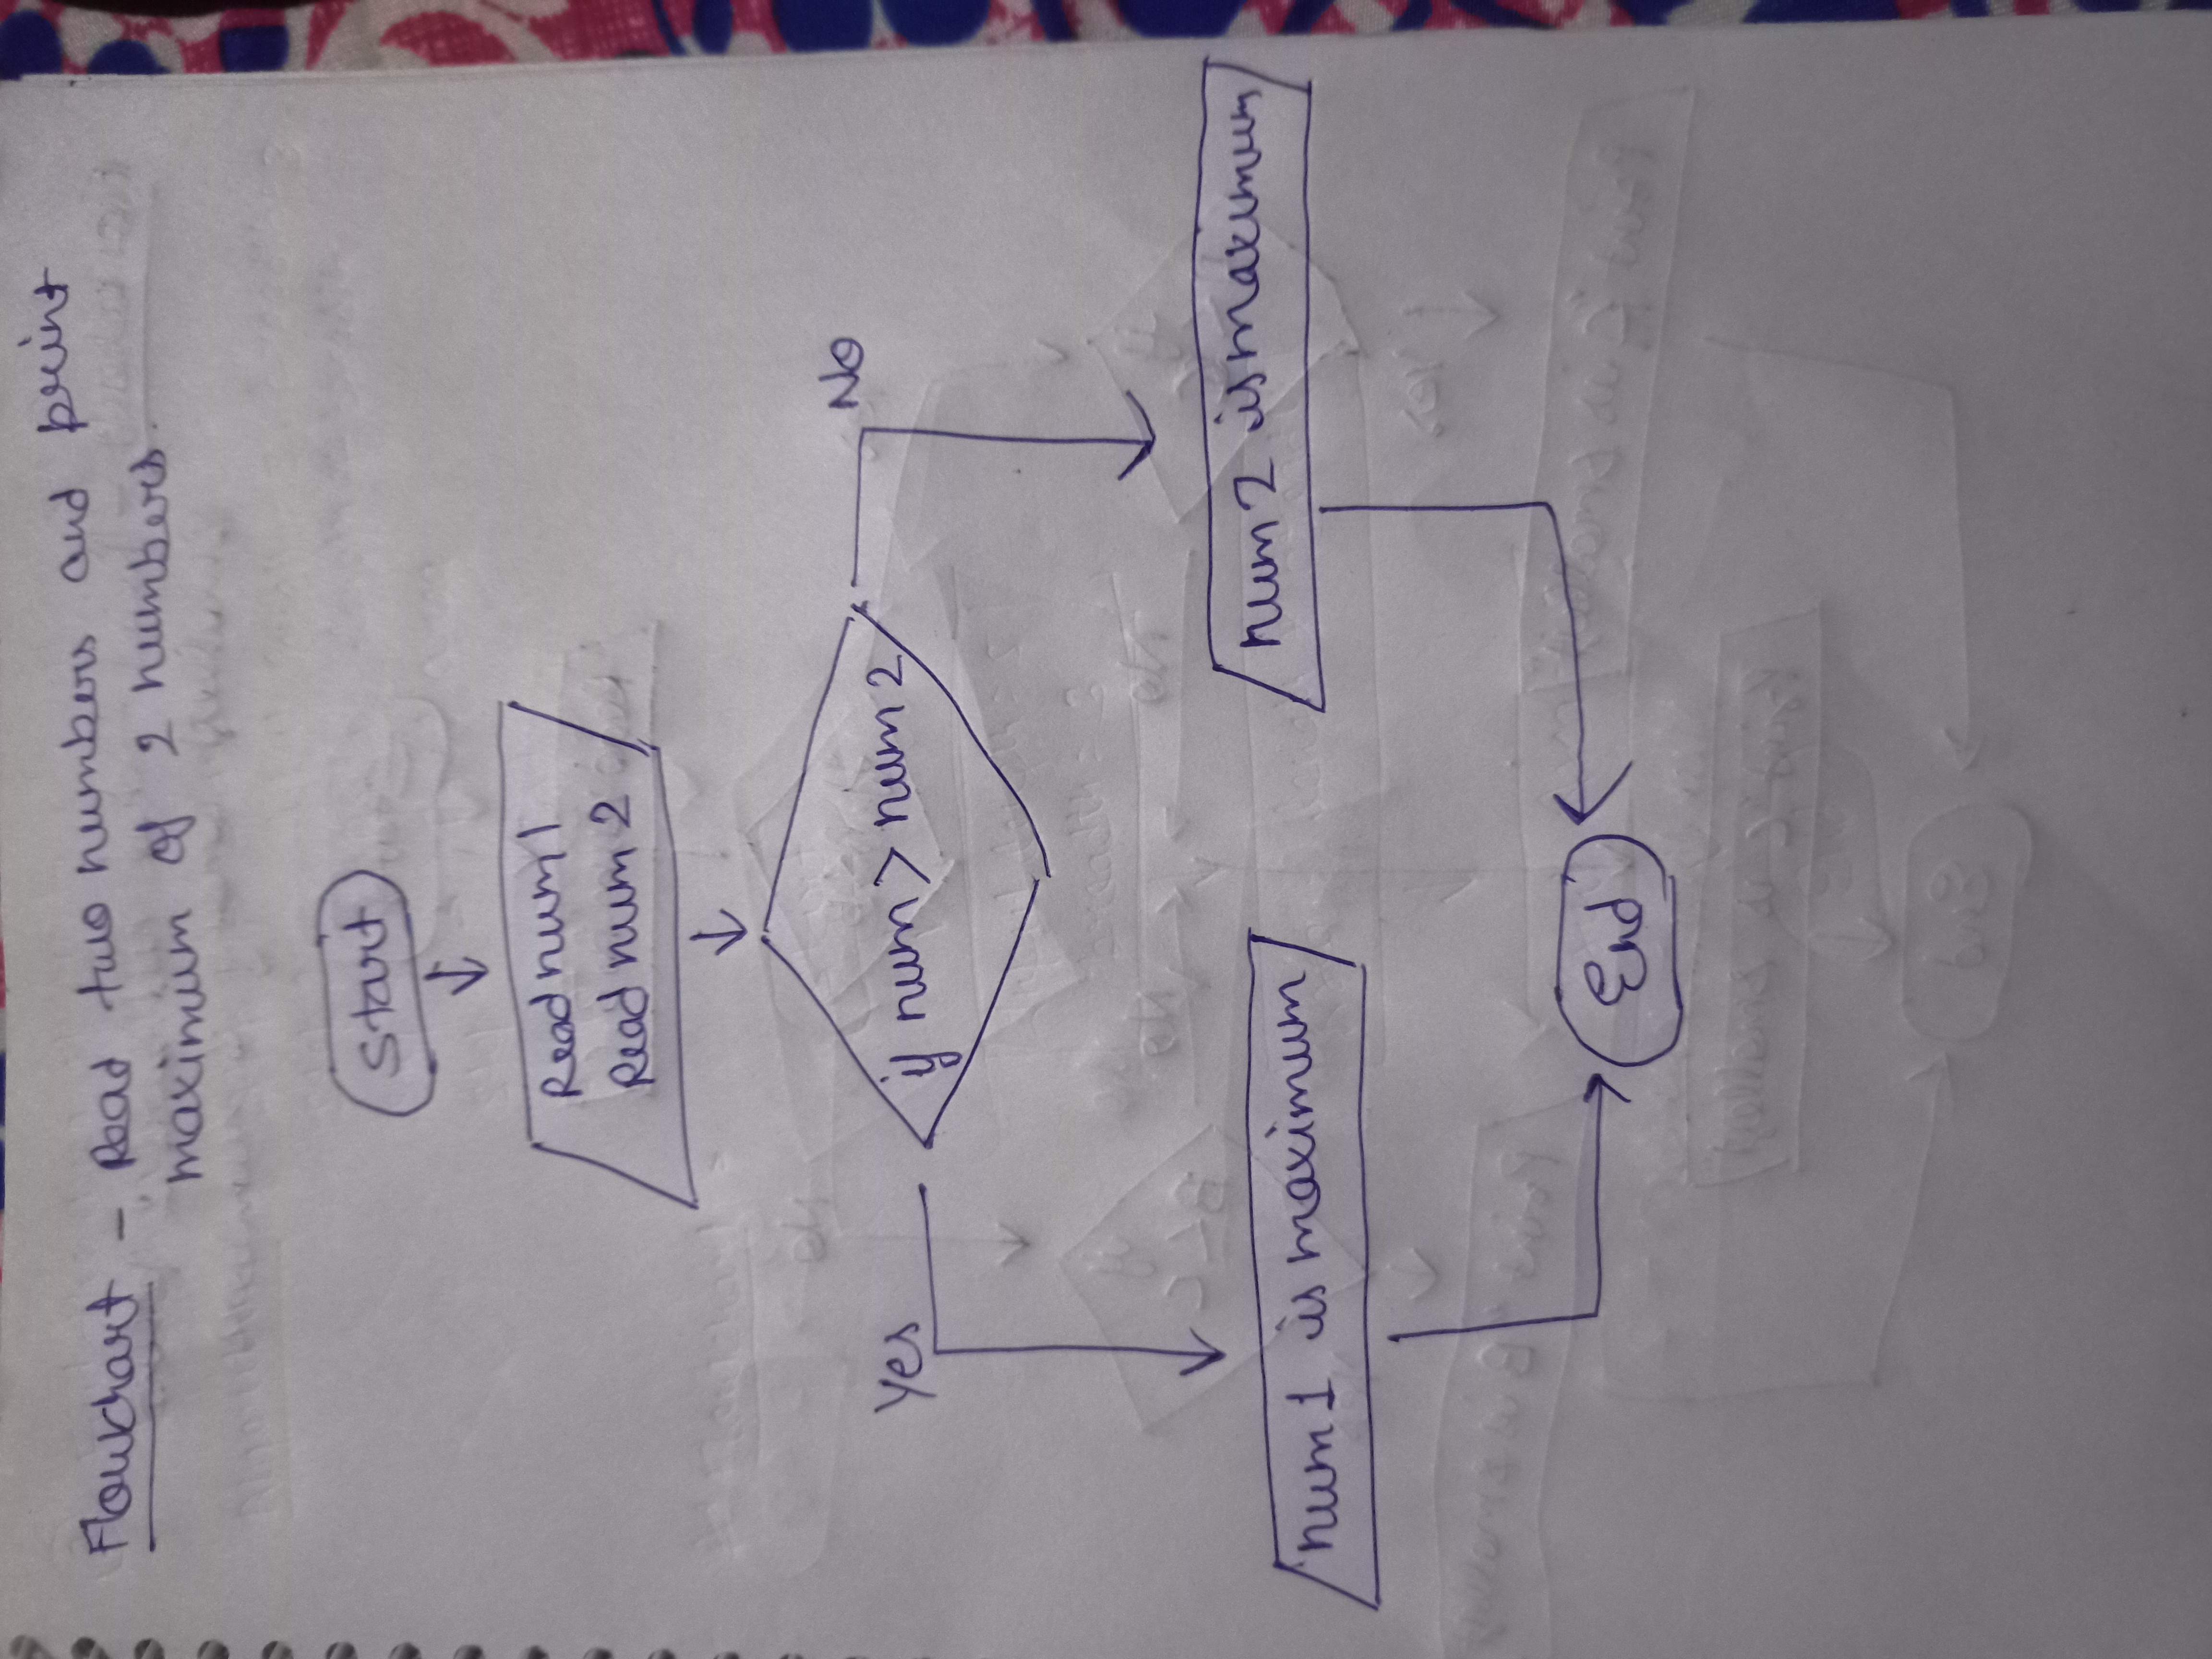 Flowchart - Read two numbers and print
maximum of 2 numbers.
Start
Read num1
Read num 2
if num > num 2
Yes
No
num 1 is maximum
num 2 is maximum
End